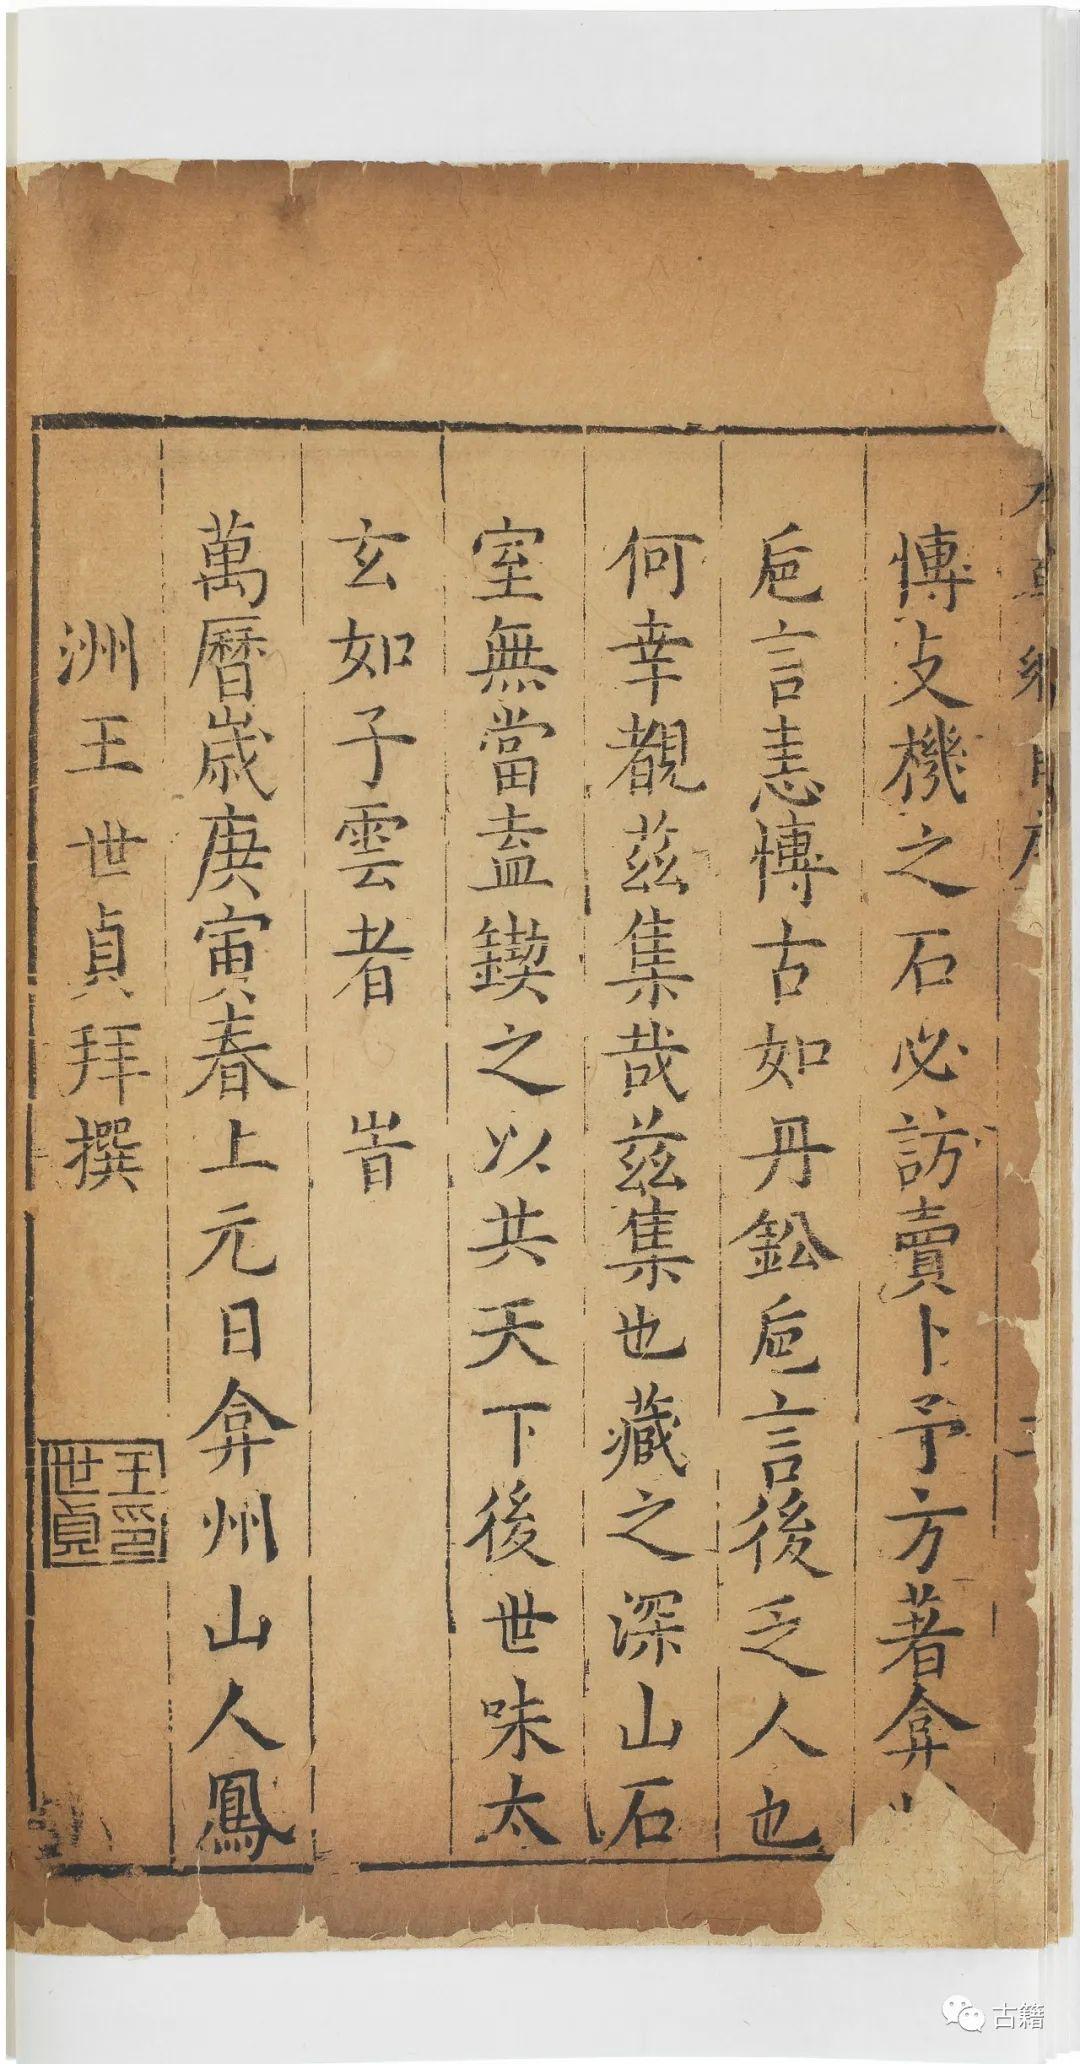 博支機之石必訪賣卜予方著弇
巵言恚博古如丹鈆巵言後乏人也
何幸覩茲集哉茲集也藏之深山石
室無當盍鍥之以共天下後世味太
玄如子雲者 旹
萬曆歲庚寅春上元日弇州山人鳳
洲王世貞拜撰
王世貞印
古籍